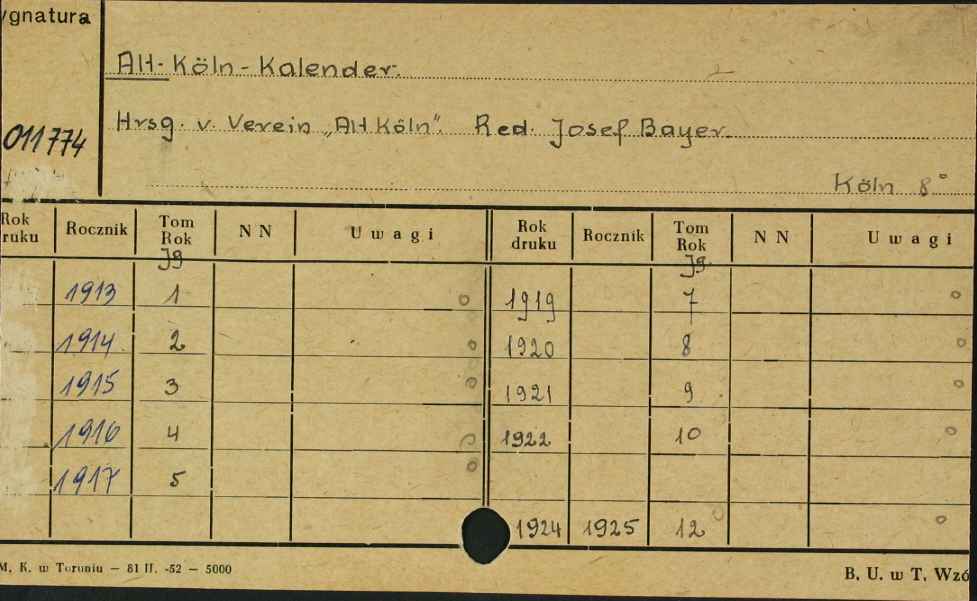 ygnatura
Alt-Köln-Kalender.
Hrsg. v. Verein „Alt Köln". Red. Josef Bayer.
011774
Köln 8°
Rok druku Rocznik Tom Rok Jg N N Uwagi Rok druku Rocznik Tom Rok Jg. N N Uwagi
1913 1 o 1919 7 o
1914 2 o 1920 8 o
1915 3 o 1921 9 o
1916 4 o 1922 10 o
1917 5 o
1924 1925 12 o
M. K. w Toruniu — 81 II. -52 — 5000
B. U. w T. Wzó